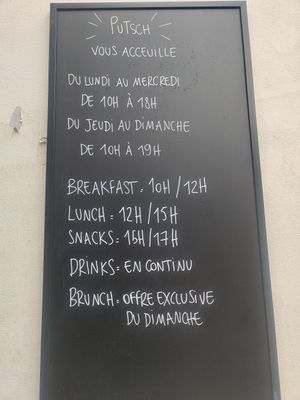 PUTSCH
VOUS ACCEUILLE
DU LUNDI AU MERCREDI
DE 10H À 18H
DU JEUDI AU DIMANCHE
DE 10H À 19H
BREAKFAST = 10H / 12H
LUNCH = 12H / 15H
SNACKS = 15H / 17H
DRINKS = EN CONTINU
BRUNCH = OFFRE EXCLUSIVE
DU DIMANCHE